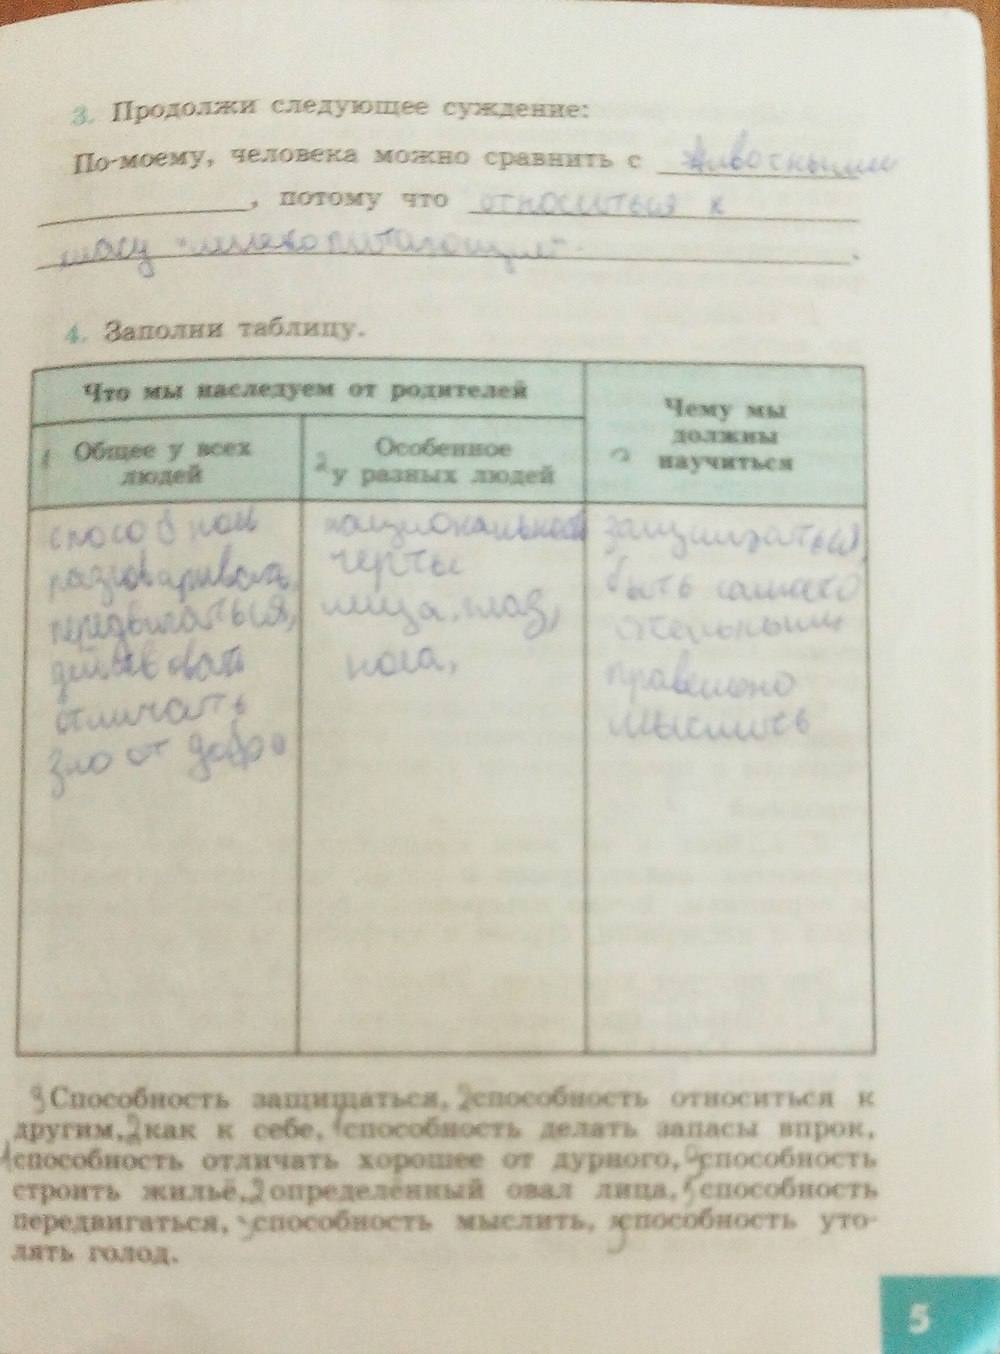 3. Продолжи следующее суждение:
По-моему, человека можно сравнить с животными
, потому что относиться к
"млекопитающим".
4. Заполни таблицу.
Что мы наследуем от родителей
Чему мы должны научиться
1 Общее у всех людей
2 Особенное у разных людей
разговаривать,
передвигаться,
отличать
зло от добра
черты
лица, глаз,
защищаться,
быть
мыслить
3 Способность защищаться, 2 способность относиться к
другим, 2 как к себе, 1 способность делать запасы впрок,
1 способность отличать хорошее от дурного, способность
строить жильё, 2 определённый овал лица, способность
передвигаться, способность мыслить, способность уто-
лять голод.
5